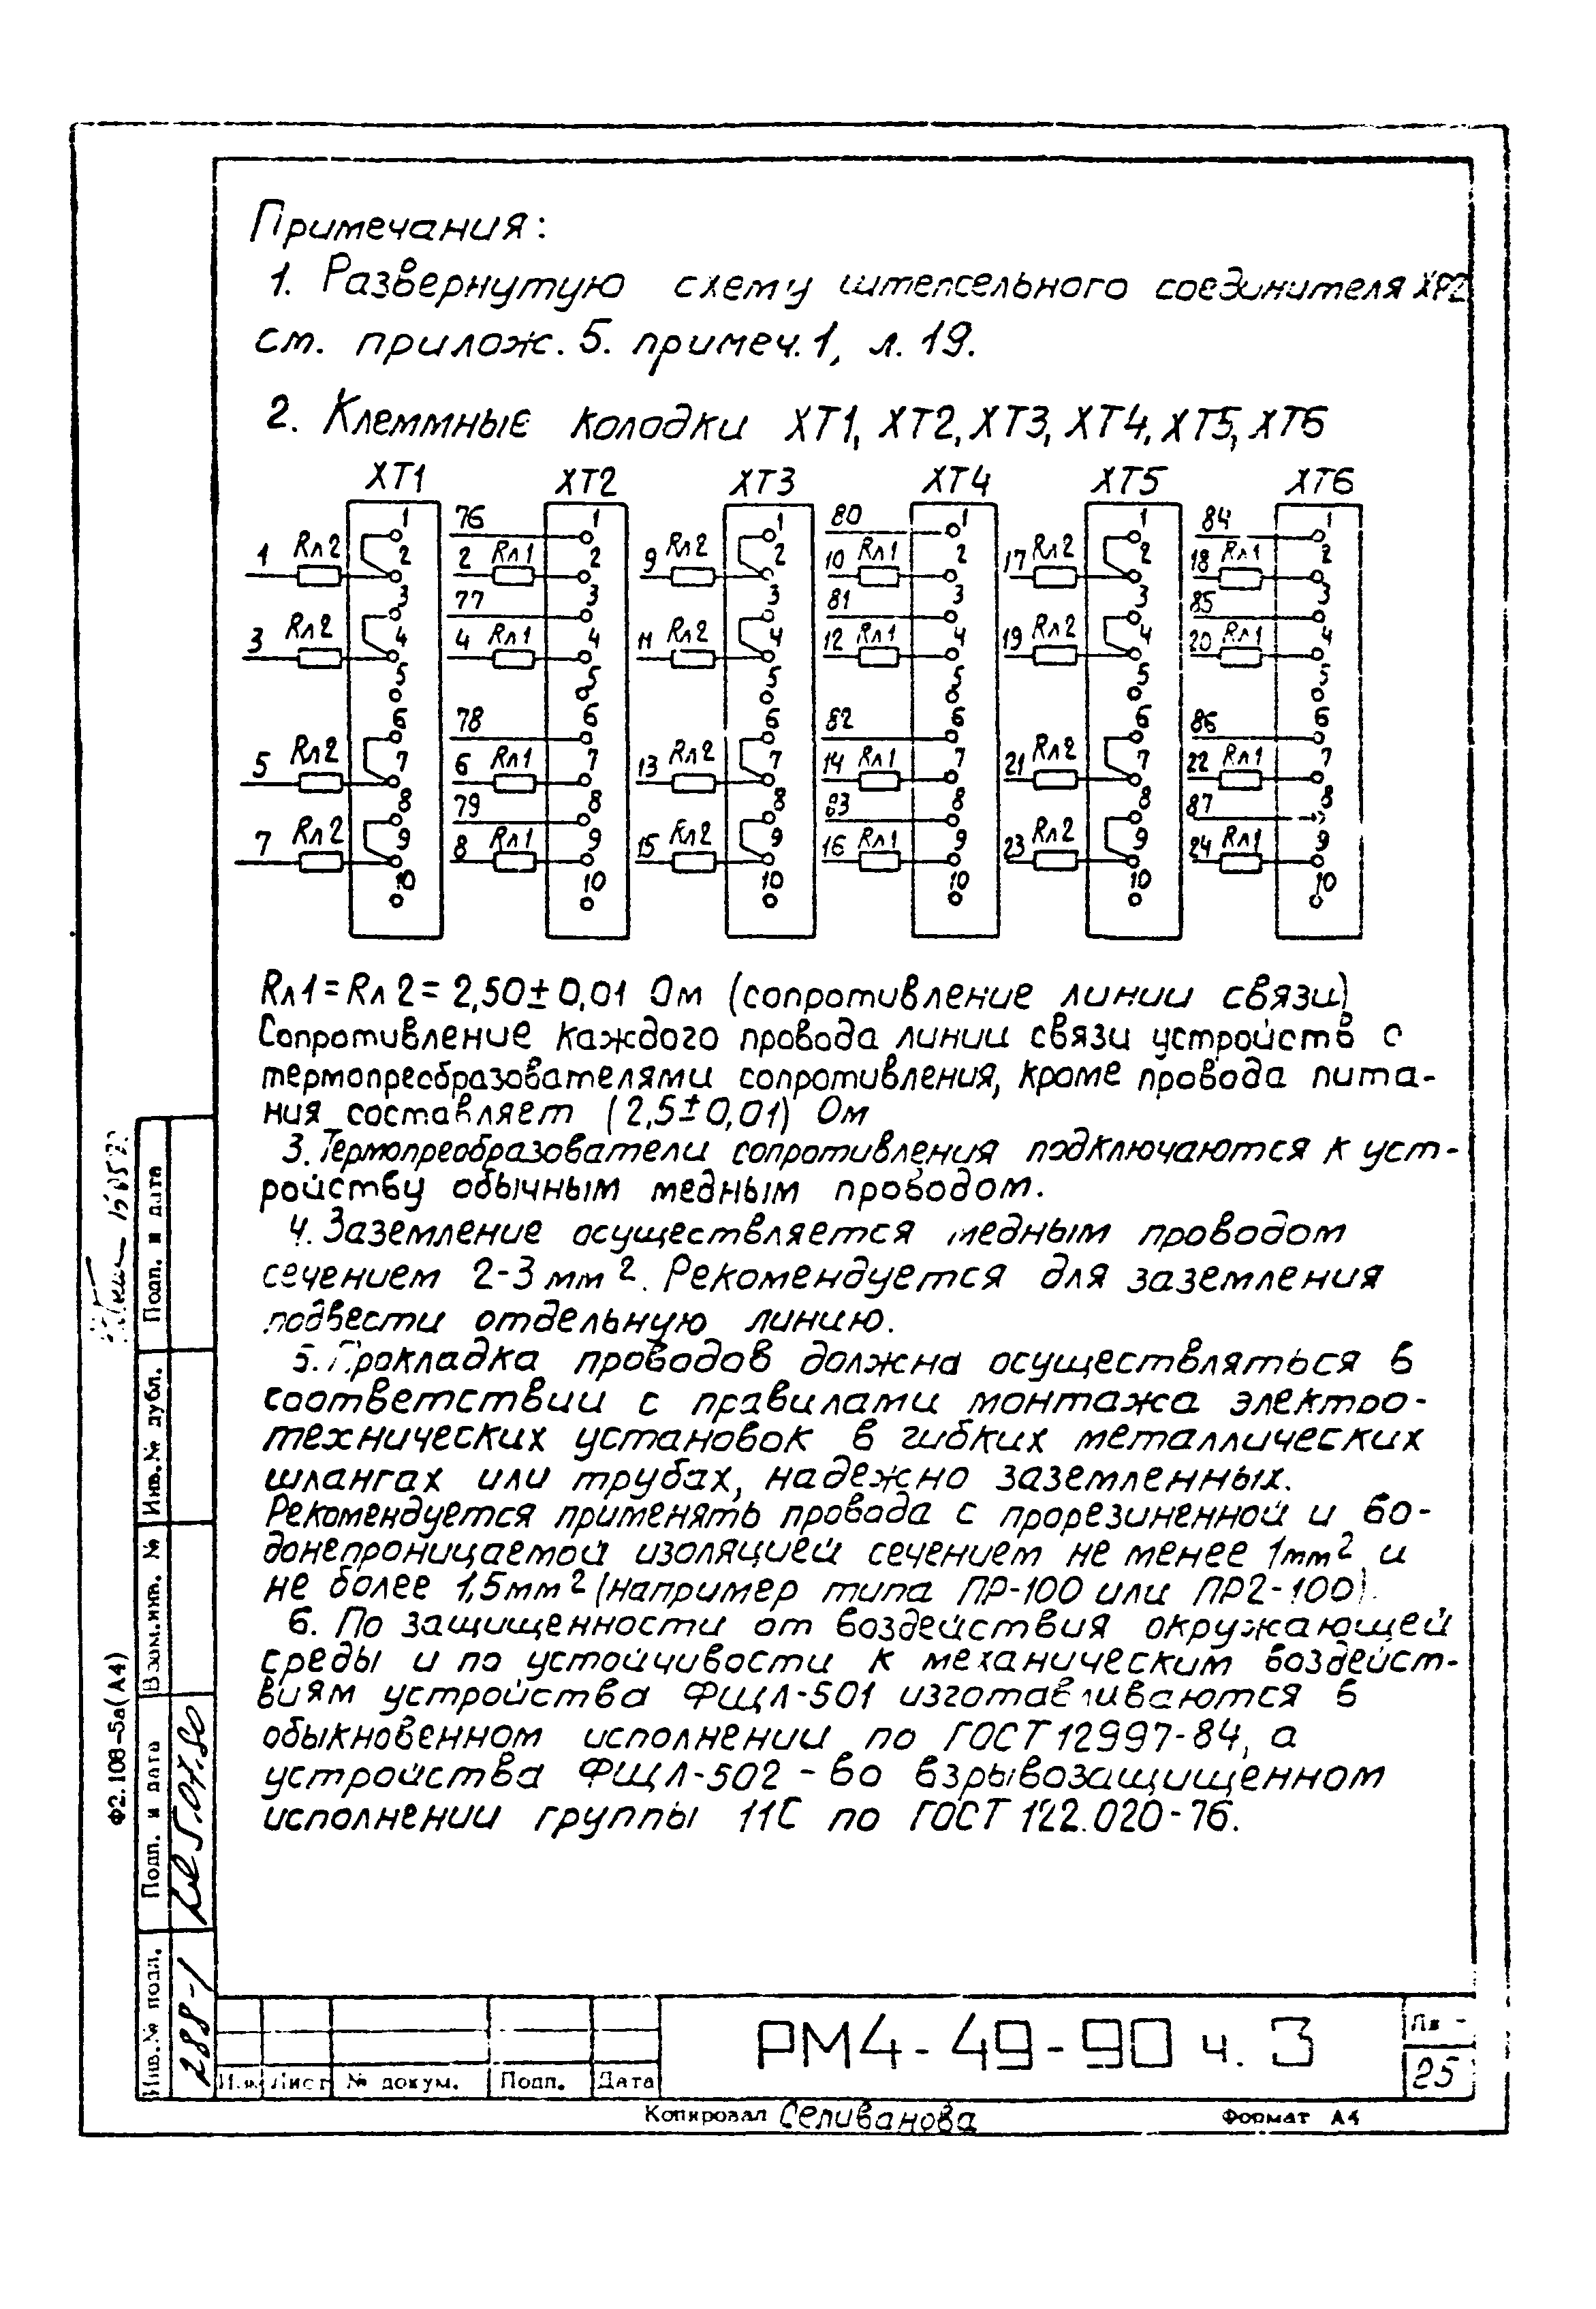 Примечания:
1. Развернутую схему штепсельного соединителя ХР2
см. прилож. 5. примеч. 1, л. 19.
2. Клеммные колодки ХТ1, ХТ2, ХТ3, ХТ4, ХТ5, ХТ6
ХТ1 ХТ2 ХТ3 ХТ4 ХТ5 ХТ6
1 76 1 1 80 1 1 84 1
1 Rл2 2 2 Rл1 2 9 Rл2 2 10 Rл1 2 17 Rл2 2 18 Rл1 2
3 77 3 3 81 3 3 85 3
3 Rл2 4 4 Rл1 4 11 Rл2 4 12 Rл1 4 19 Rл2 4 20 Rл1 4
5 5 5 5 5 5
6 78 6 6 82 6 6 86 6
5 Rл2 7 6 Rл1 7 13 Rл2 7 14 Rл1 7 21 Rл2 7 22 Rл1 7
8 79 8 8 83 8 8 87 8
7 Rл2 9 8 Rл1 9 15 Rл2 9 16 Rл1 9 23 Rл2 9 24 Rл1 9
10 10 10 10 10 10
Rл1 = Rл2 = 2,50±0,01 Ом (сопротивление линии связи)
Сопротивление каждого провода линии связи устройств с
термопреобразователями сопротивления, кроме провода пита-
ния составляет (2,5±0,01) Ом
3. Термопреобразователи сопротивления подключаются к уст-
ройству обычным медным проводом.
4. Заземление осуществляется медным проводом
сечением 2-3 мм². Рекомендуется для заземления
подвести отдельную линию.
5. Прокладка проводов должна осуществляться в
соответствии с правилами монтажа электро-
технических установок в гибких металлических
шлангах или трубах, надежно заземленных.
Рекомендуется применять провода с прорезиненной и во-
донепроницаемой изоляцией сечением не менее 1мм² и
не более 1,5мм² (например типа ПР-100 или ПР2-100).
6. По защищенности от воздействия окружающей
среды и по устойчивости к механическим воздейст-
виям устройства ФЩЛ-501 изготавливаются в
обыкновенном исполнении по ГОСТ 12997-84, а
устройства ФЩЛ-502 - во взрывозащищенном
исполнении группы 11С по ГОСТ 122.020-76.
Подп. и дата
Инв.№ дубл.
Взам.инв. №
Подп. и дата
Инв.№ подл.
288-1
Ф2.108-5а(А4)
РМ4-49-90 ч. 3
25
Лист № докум. Подп. Дата
Копировал Селиванова Формат А4